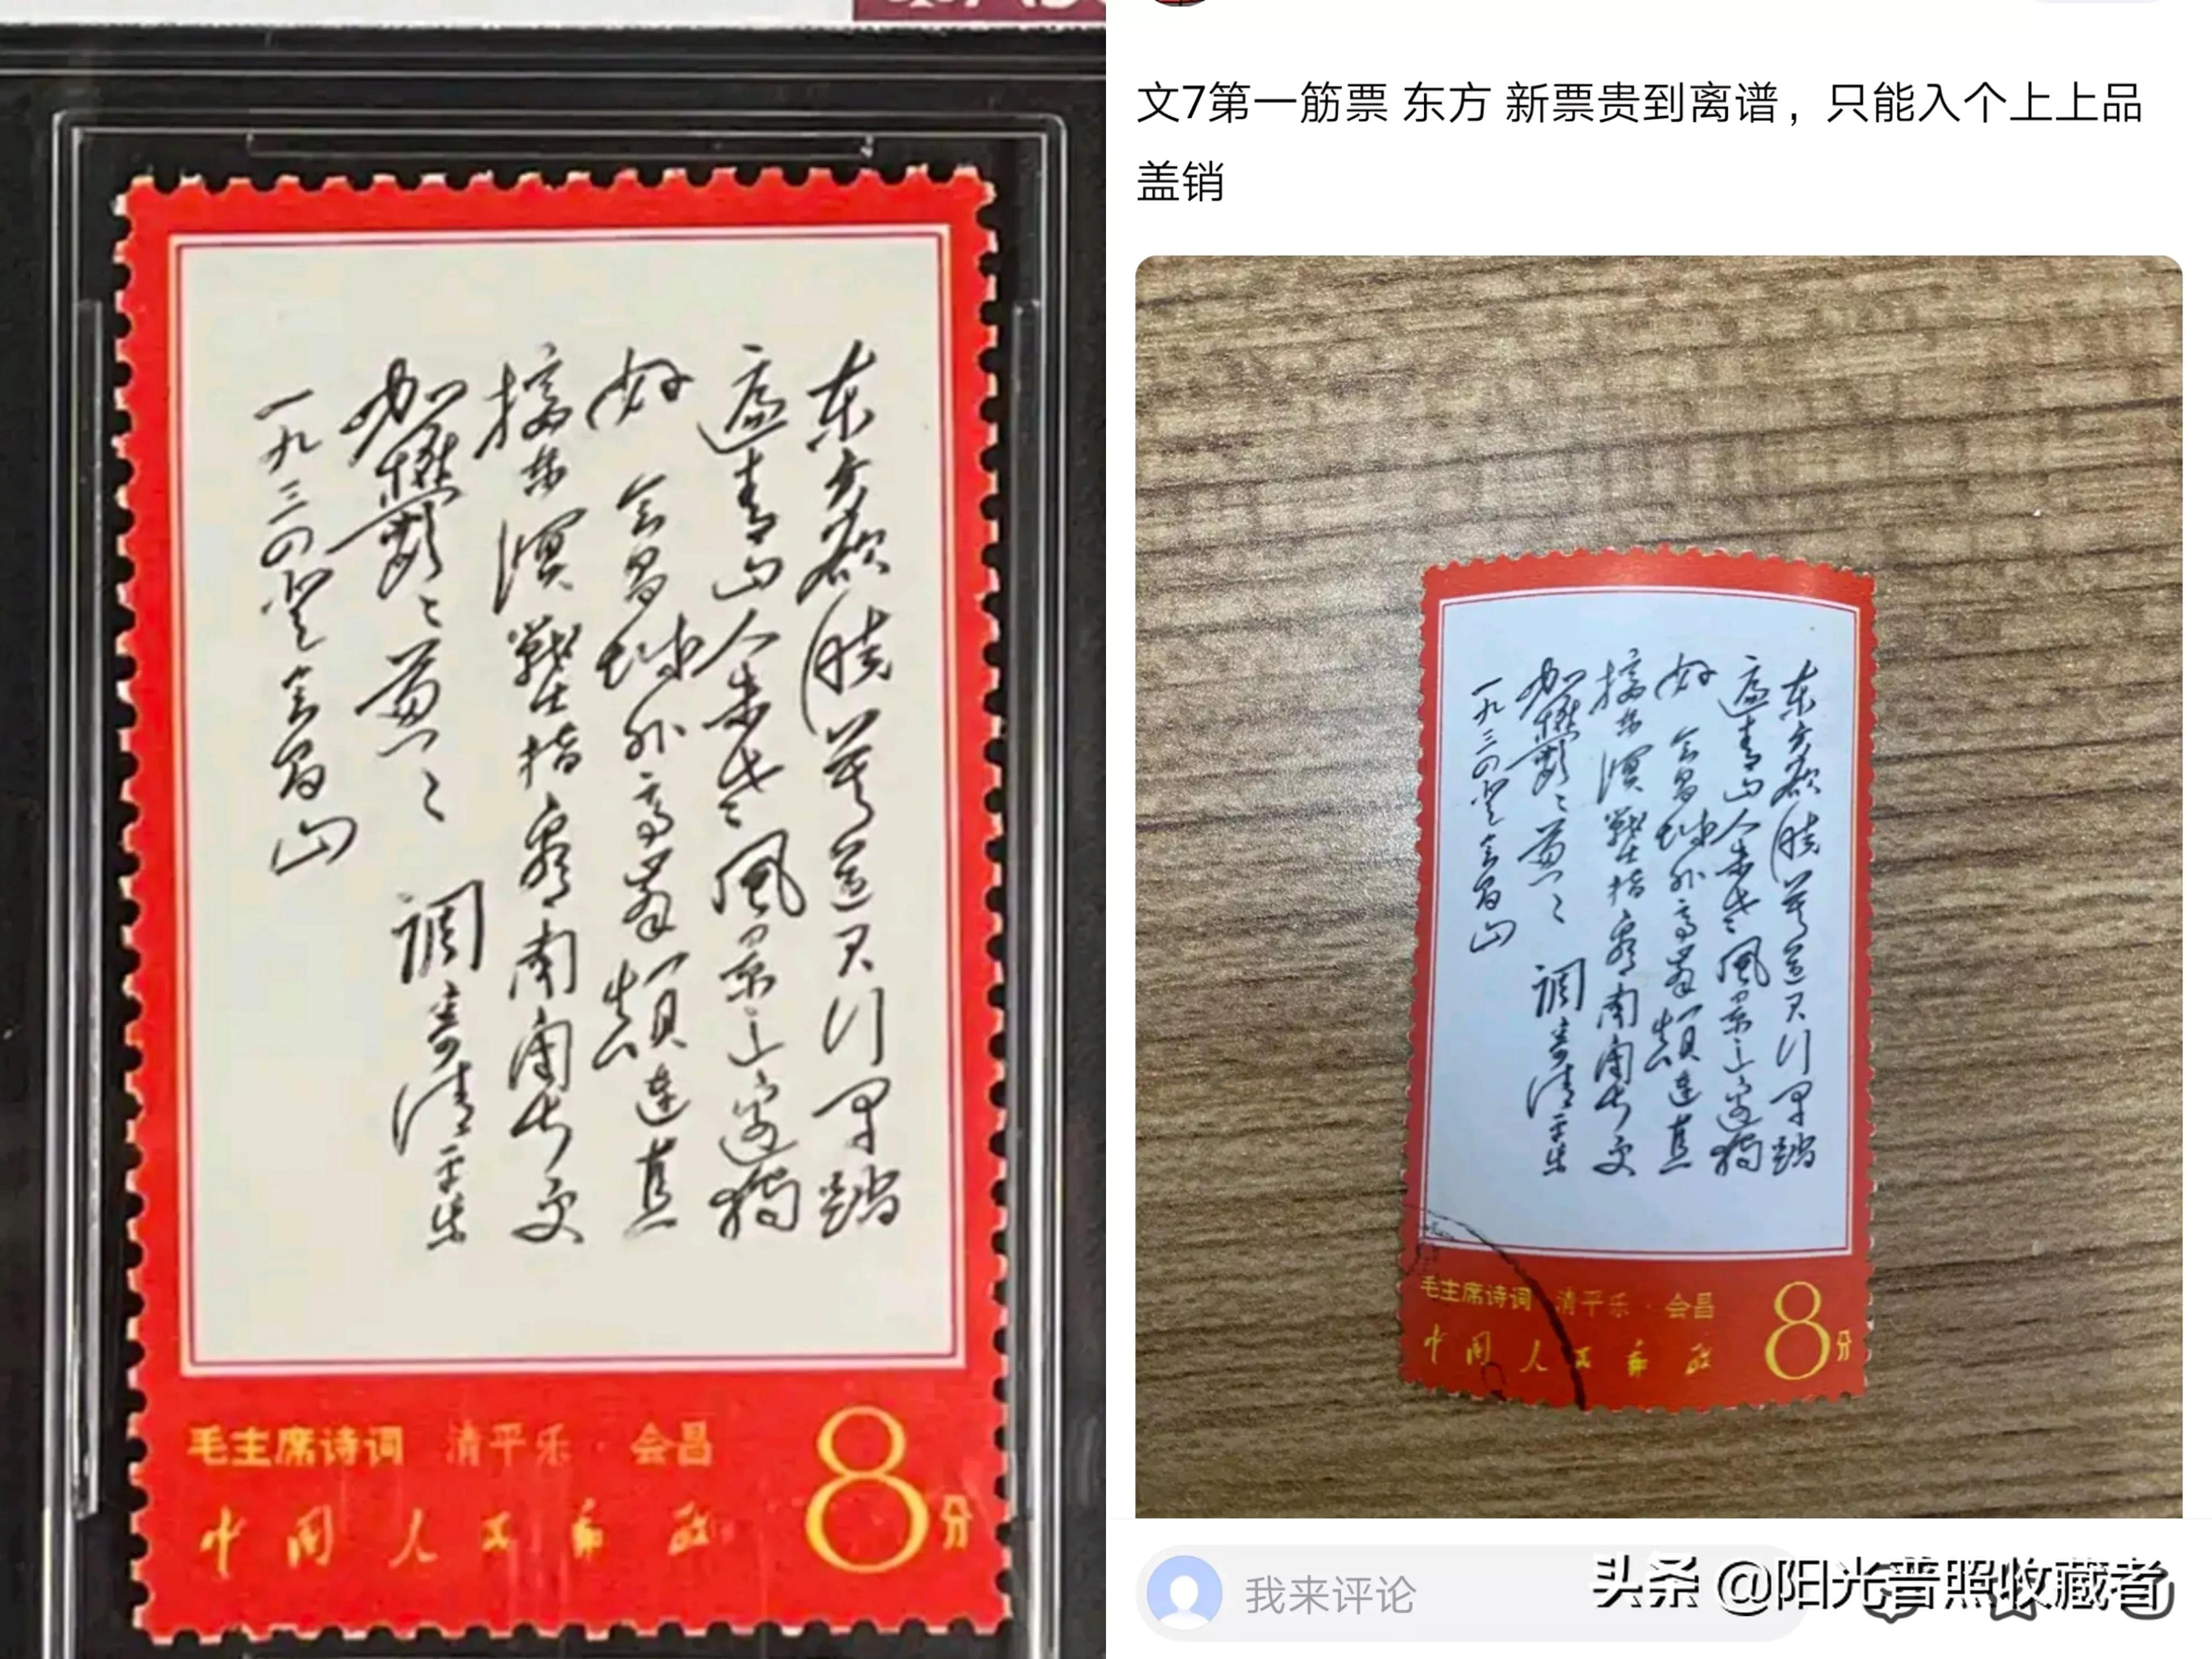 东方欲晓莫道君行早踏
遍青山人未老風景这边獨
好 会昌城外高峯颠连直
接东溟戰士指看南粤更
加鬱々葱々 调寄清平乐
一九三四登会昌山
毛主席诗词 清平乐·会昌
中国人民邮政
8分
文7第一筋票 东方 新票贵到离谱，只能入个上上品
盖销
东方欲晓莫道君行早踏
遍青山人未老風景这边獨
好 会昌城外高峯颠连直
接东溟戰士指看南粤更
加鬱々葱々 调寄清平乐
一九三四登会昌山
毛主席诗词 清平乐·会昌
中国人民邮政
8分
我来评论
头条 @阳光普照收藏者